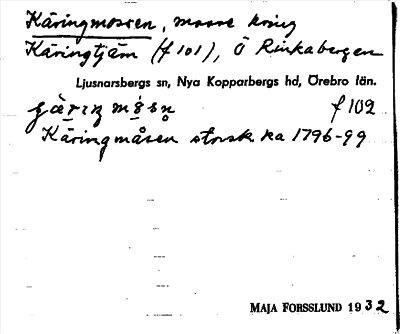 Käringmossen, mosse kring
Käringtjärn (f 101), Ö Rinkabergen
Ljusnarsbergs sn, Nya Kopparbergs hd, Örebro län.
f 102
Käringmåsen storsk ka 1796-99
MAJA FORSSLUND 1932